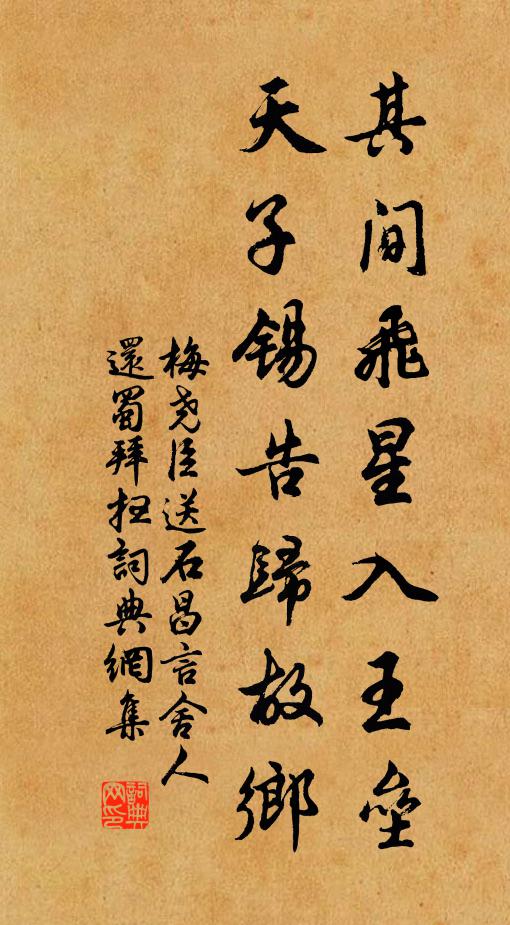 其間飛星入王壘
天子錫告歸故鄉
梅尧臣送石昌言舍人
還蜀拜掃詞典網集
詞典网印